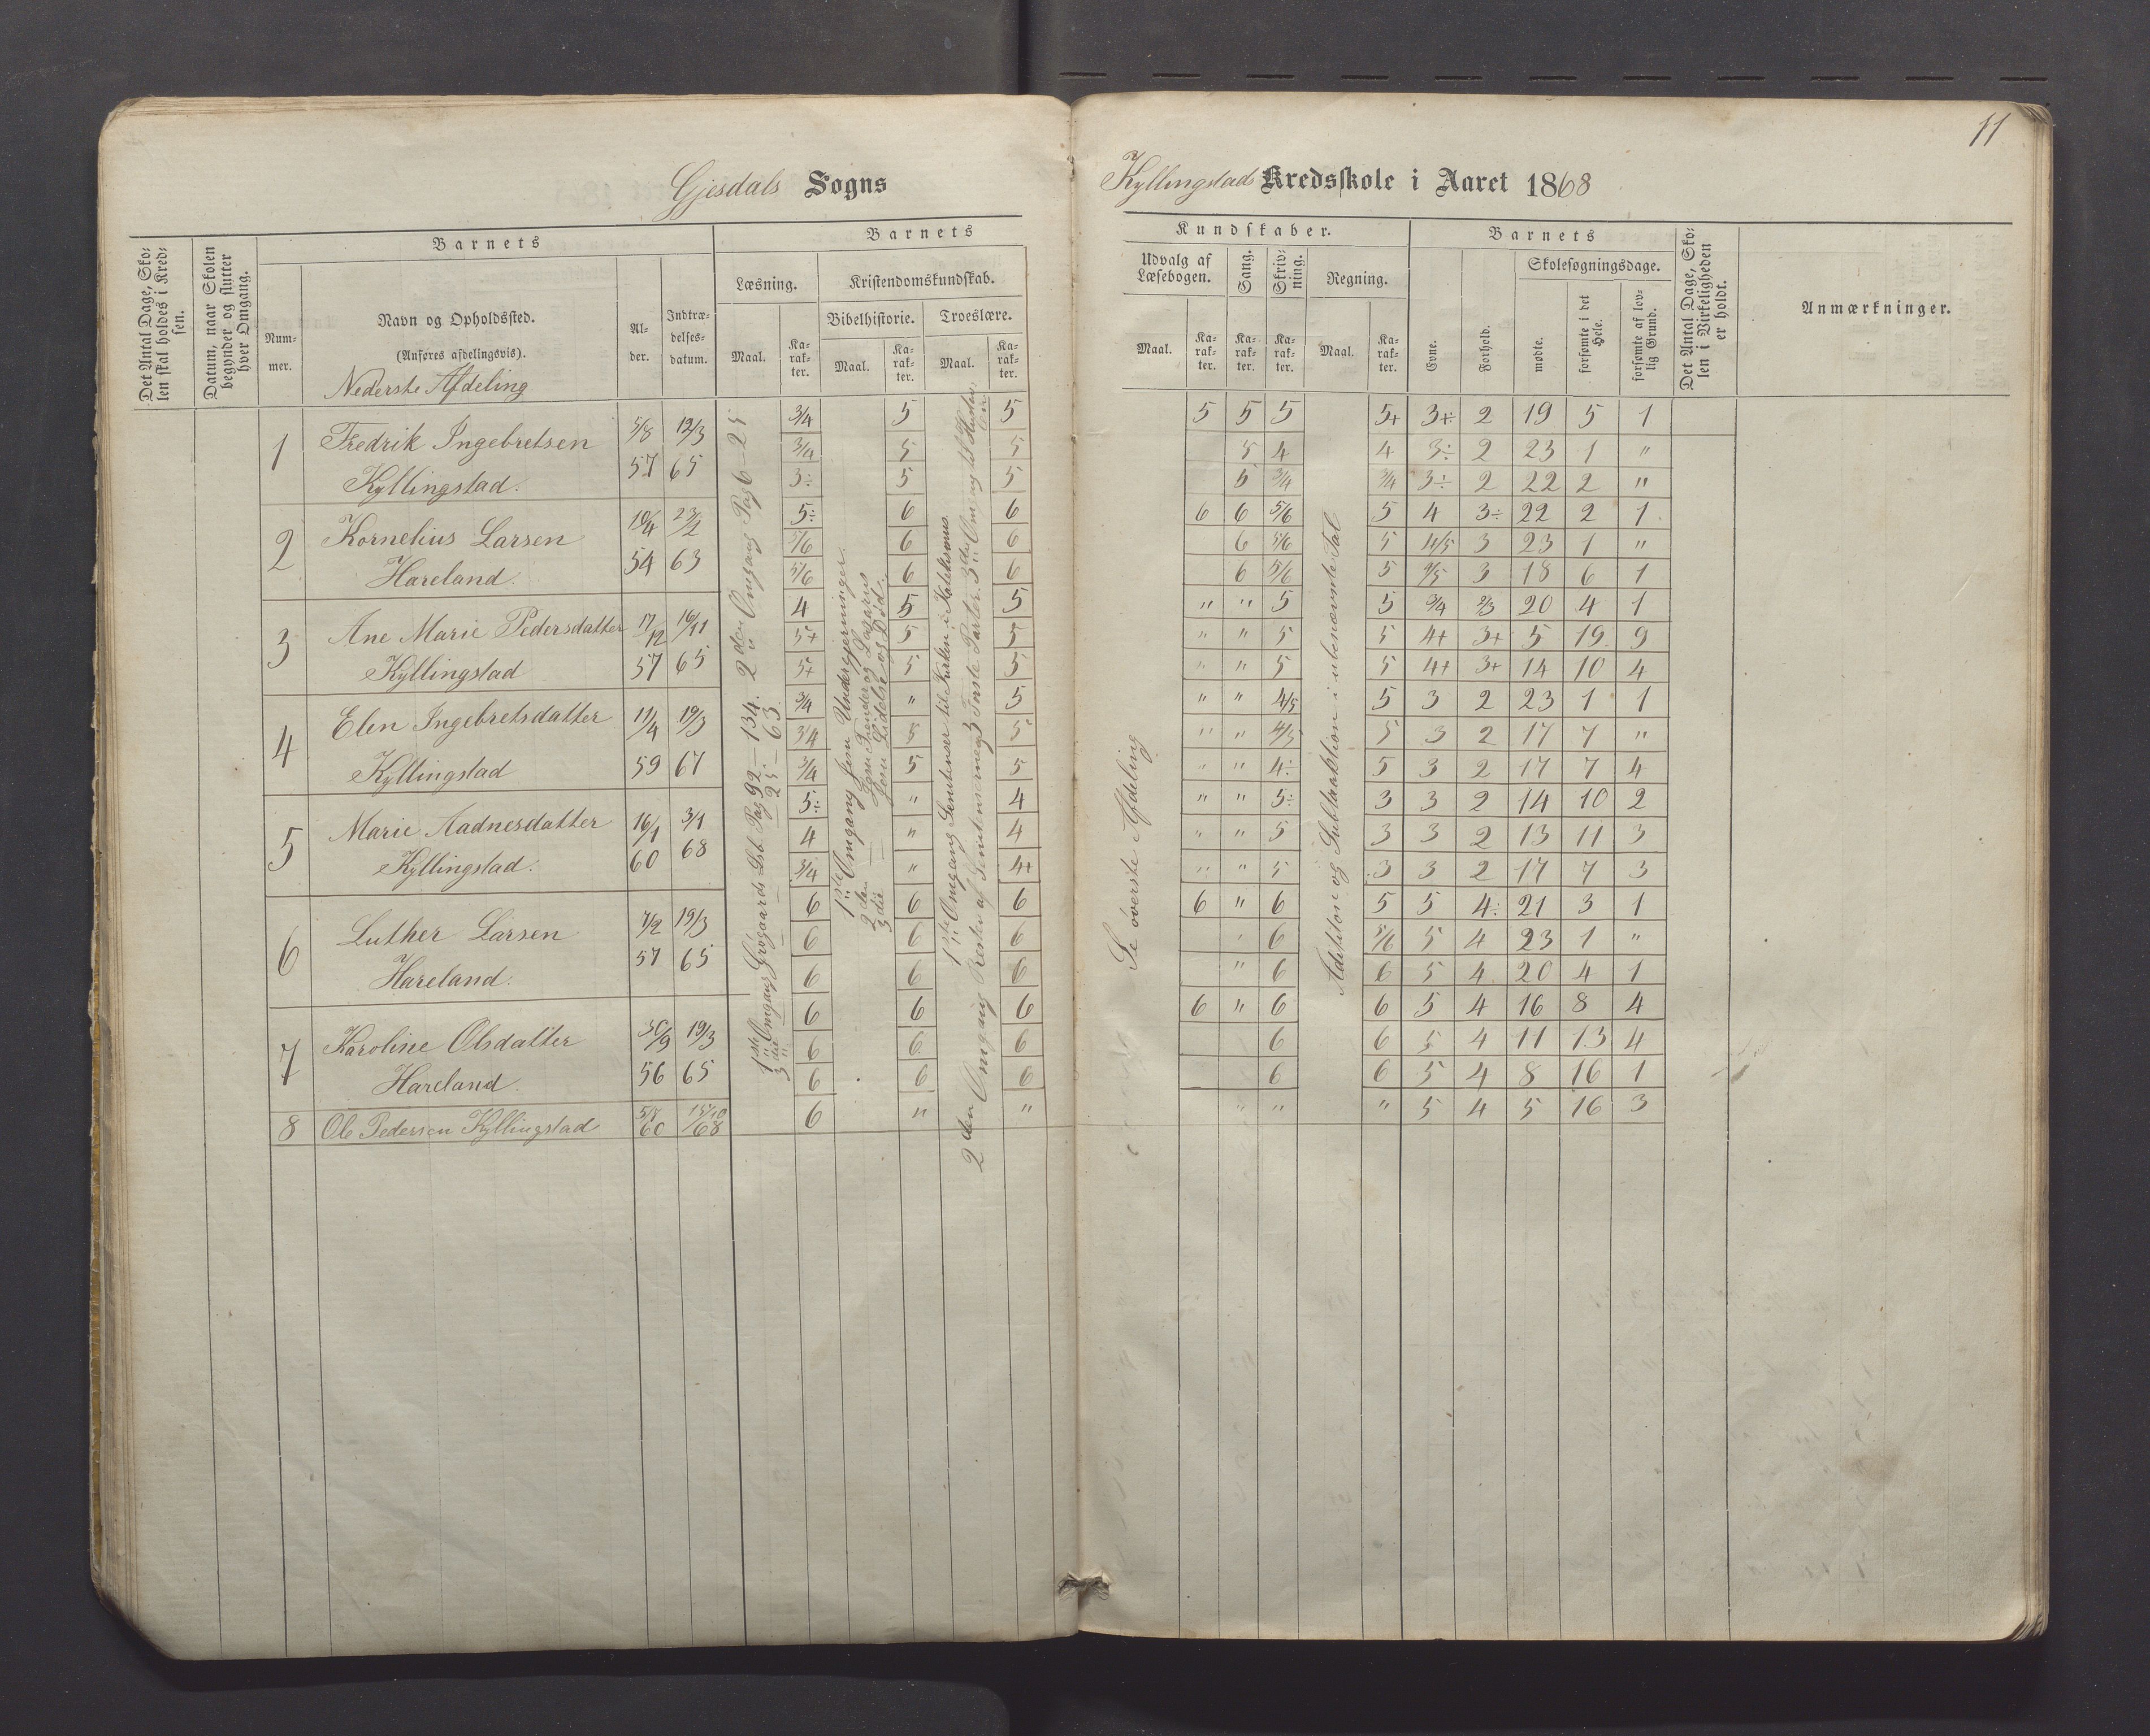 11
Gjesdals Sogns
Kyllingstad Kredsskole i Aaret 1868
Det Antal Dage, Sko-
len skal holdes i Kred-
sen.
Datum, naar Skolen
begynder og slutter
hver Omgang.
Barnets
Num-
mer.
Navn og Opholdssted.
(Anføres afdelingsvis).
Nederste Afdeling
Al-
der.
Indtræ-
delses-
datum.
Barnets
Læsning.
Maal.
Ka-
rak-
ter.
Kristendomskundskab.
Bibelhistorie.
Maal.
Ka-
rak-
ter.
Troeslære.
Maal.
Ka-
rak-
ter.
Kundskaber.
Udvalg af
Læsebogen.
Maal.
Ka-
rak-
ter.
Sang.
Ka-
rak-
ter.
Skriv-
ning.
Ka-
rak-
ter.
Regning.
Maal.
Ka-
rak-
ter.
Barnets
Evne.
Forhold.
Skolesøgningsdage.
mødte.
forsømte i det
Hele.
forsømte af lov-
lig Grund.
Det Antal Dage, Sko-
len i Virkeligheden
er holdt.
Anmærkninger.
1ste Omgang Grøgaards Lsb. Pag 92–134. 2den Omgang Pag 6–25
3die — — — 25–63
1ste Omgang Jesu Undergjerninger
2den — Jesu Frender og Lazarus
3die — Jesu Lidelse og Død
1ste Omgang Sentenser til Purken i Katekismus
2den Omgang Resten af Sentenserne 3 Første Parter. 3die Omgang til
Se øverste Afdeling
Addition og Subtraktion i ubenævnte Tal
1 Fredrik Ingebretsen 5/8 12/3 3/4 5 5 5 5 5 5+ 3+ 2 19 5 1
Kyllingstad. 57 65 3/4 5 5 5 4 4 3÷ 2 23 1 "
3÷ 5 5 5 3/4 3/4 3÷ 2 22 2 "
2 Kornelius Larsen 10/4 23/2 5÷ 6 6 6 6 5/6 5 4 3÷ 22 2 1
Hareland. 54 63 5/6 6 6 6 5/6 5 4/5 3 23 1 "
5/6 6 6 6 5/6 5 4/5 3 18 6 1
3 Ane Marie Pedersdatter 17/12 16/11 4 5 5 " " 5 5 3/4 2/3 20 4 1
Kyllingstad 57 65 5+ 5 5 " " 5 5 4+ 3+ 5 19 9
5+ 5 5 " " 5 5 4+ 3+ 14 10 4
4 Elen Ingebretsdatter 11/4 19/3 3/4 " 5 " " 4/5 5 3 2 23 1 1
Kyllingstad 59 67 3/4 5 5 " " 4/5 5 3 2 17 7 "
3/4 5 5 " " 4÷ 5 3 2 17 7 4
5 Marie Aadnesdatter 16/1 3/1 5÷ " 4 " " 5÷ 3 3 2 14 10 2
Kyllingstad. 60 68 4 " 4 " " 5 3 3 2 13 11 3
3/4 " 4+ " " 5 3 3 2 17 7 3
6 Luther Larsen 7/2 19/3 6 6 6 6 " 6 5 5 4÷ 21 3 1
Hareland. 57 65 6 6 6 " 6 5/6 5 4 23 1 "
6 6 6 " 6 6 5 4 20 4 1
7 Karoline Olsdatter 30/9 19/3 6 6 6 6 " 6 6 5 4 16 8 4
Hareland. 56 65 6 6 6 6 6 5 4 11 13 4
6 6 6 6 6 5 4 8 16 1
8 Ole Pedersen Kyllingstad 60 68 6 " " " " " 5 4 5 16 3